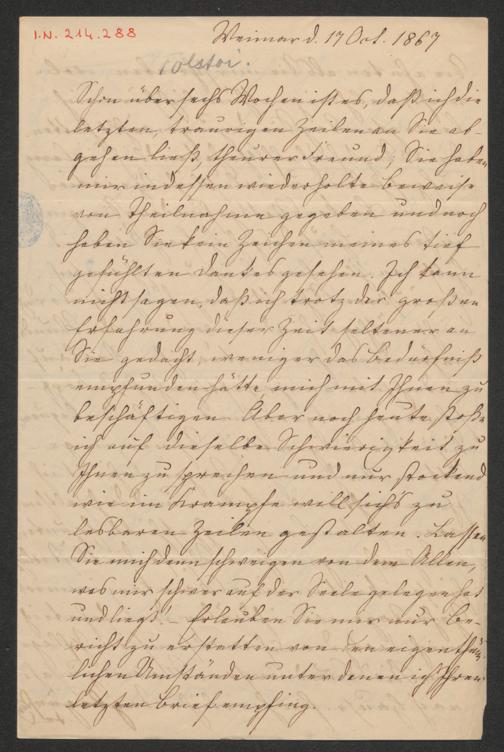 I.N. 214.288
Weimar d. 17 Oct. 1867
Tolstoi.
Schon über sechs Wochen ist es, daß ich die
letzten, traurigen Zeilen an Sie ab-
gehen ließ, theurer Freund; Sie haben
mir indessen wiederholte Beweise
von Theilnahme gegeben und noch
haben Sie kein Zeichen meines tief
gefühlten Dankes gesehen. Ich kann
nicht sagen, daß ich trotz der großen
Erfahrung dieser Zeit seltener an
Sie gedacht, weniger das Bedürfniß
empfunden hätte mich mit Ihnen zu
beschäftigen. Aber noch heute stoße
ich auf dieselbe Schwierigkeit zu
Ihnen zu sprechen und nur stockend
wie im Krampfe will sich's zu
lesbaren Zeilen gestalten. Lassen
Sie mich denn schweigen von dem Allen,
was mir schwer auf der Seele gelegen hat
und liegt! – Erlauben Sie mir nur Be-
richt zu erstatten von den eigenthüm-
lichen Umständen unter denen ich Ihren
letzten Brief empfing.